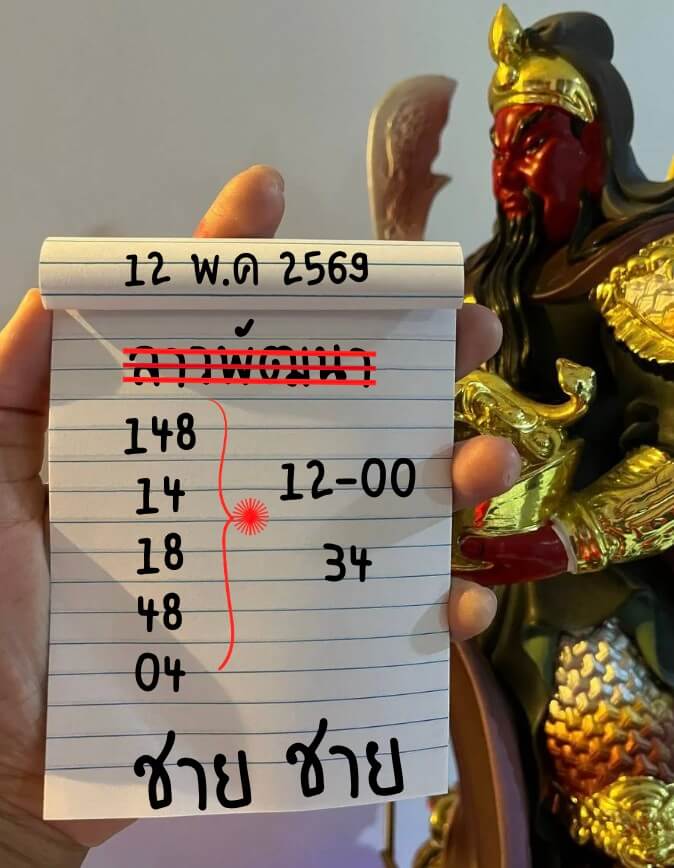 12 พ.ค 2569
ลาวพัฒนา
148
14
18
48
04
12-00
34
ชาย ชาย